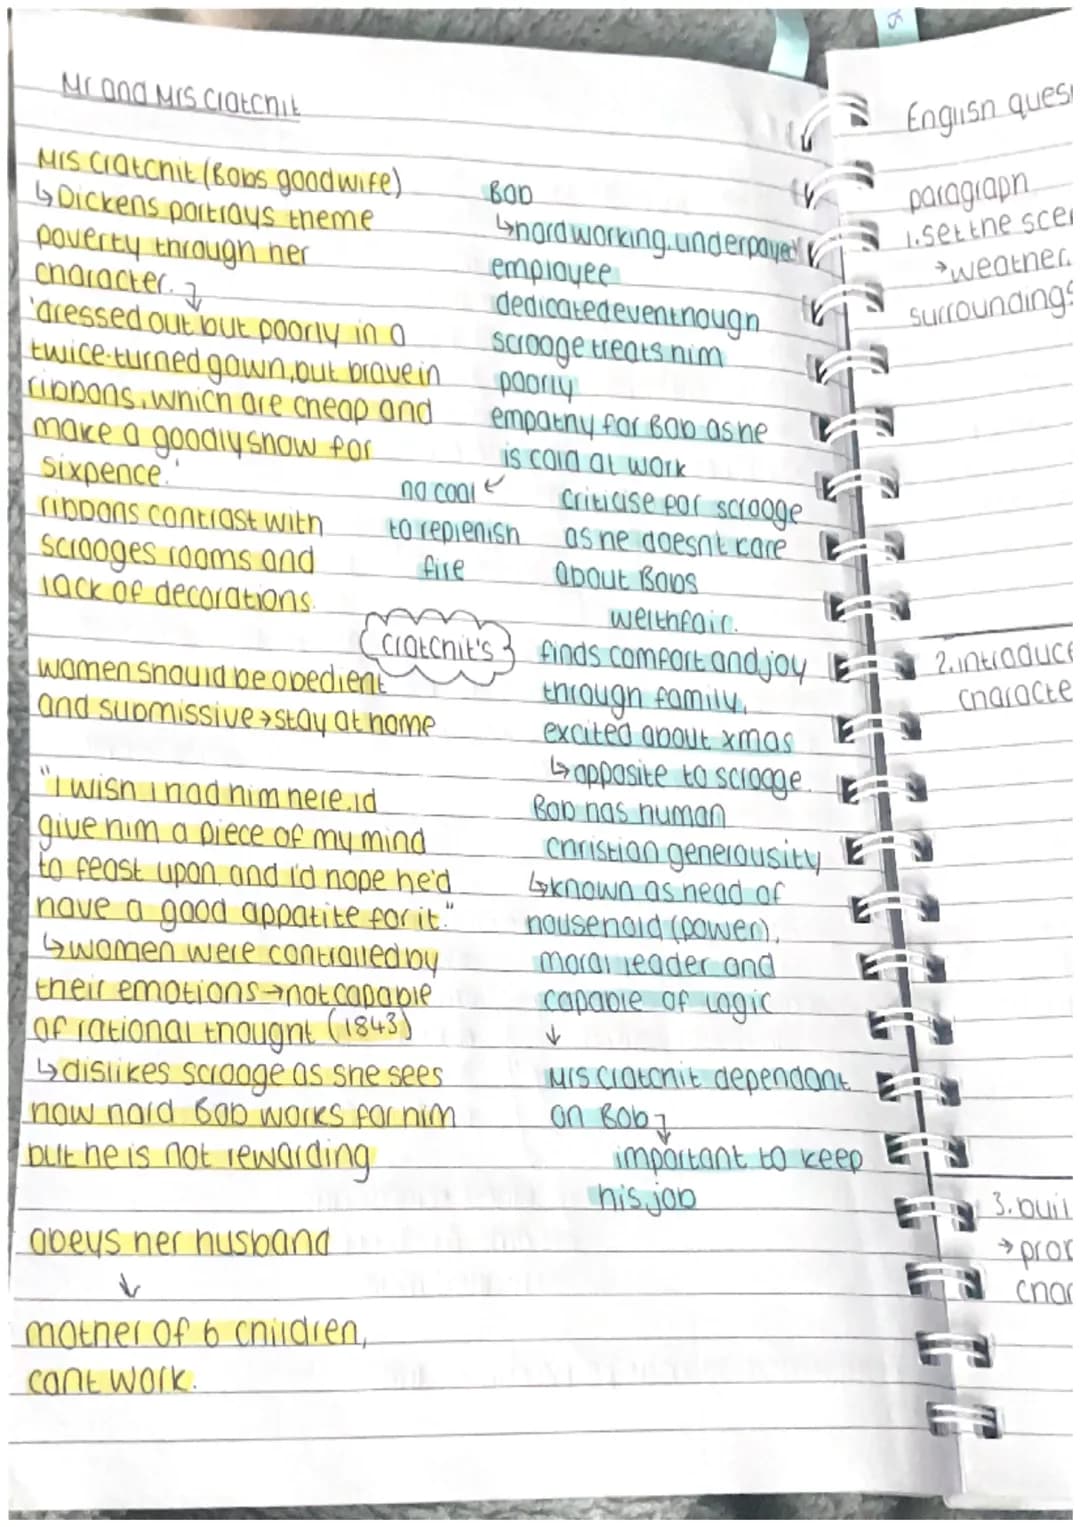 Mr and Mrs Cratchit
Mrs Cratchit (Bobs goodwife)
↳Dickens portrays theme
poverty through her
character.
'dressed out but poorly in a
twice-turned gown, but brave in
ribbons, which are cheap and
make a goodly show for
sixpence.'
ribbons contrast with
scrooges rooms and
lack of decorations.
women should be obedient
and submissive → stay at home
"I wish I had him here. id
give him a piece of my mind
to feast upon, and i'd hope he'd
have a good appatite for it."
↳women were controlled by
their emotions → not capable
of rational thought (1843)
↳dislikes scrooge as she sees
how hard Bob works for him
but he is not rewarding
obeys her husband
↓
mother of 6 children,
cant work.
Cratchit's
Bob
↳hardworking, underpayed
employee
dedicated eventhough
scrooge treats him
poorly
empathy for Bob as he
is cold at work
no coal
to replenish
fire
criticise for scrooge
as he doesnt care
about Bobs
welthfair.
finds comfort and joy
through family,
excited about xmas
↳opposite to scrooge.
Bob has human
christian generousity
↳known as head of
household (power),
moral leader and
capable of logic
↓
Mrs Cratchit dependant
on Bob
important to keep
his job
English ques
paragraph
1. set the sce
→weather.
surroundings
2. introduce
characte
3. buil
→
cha